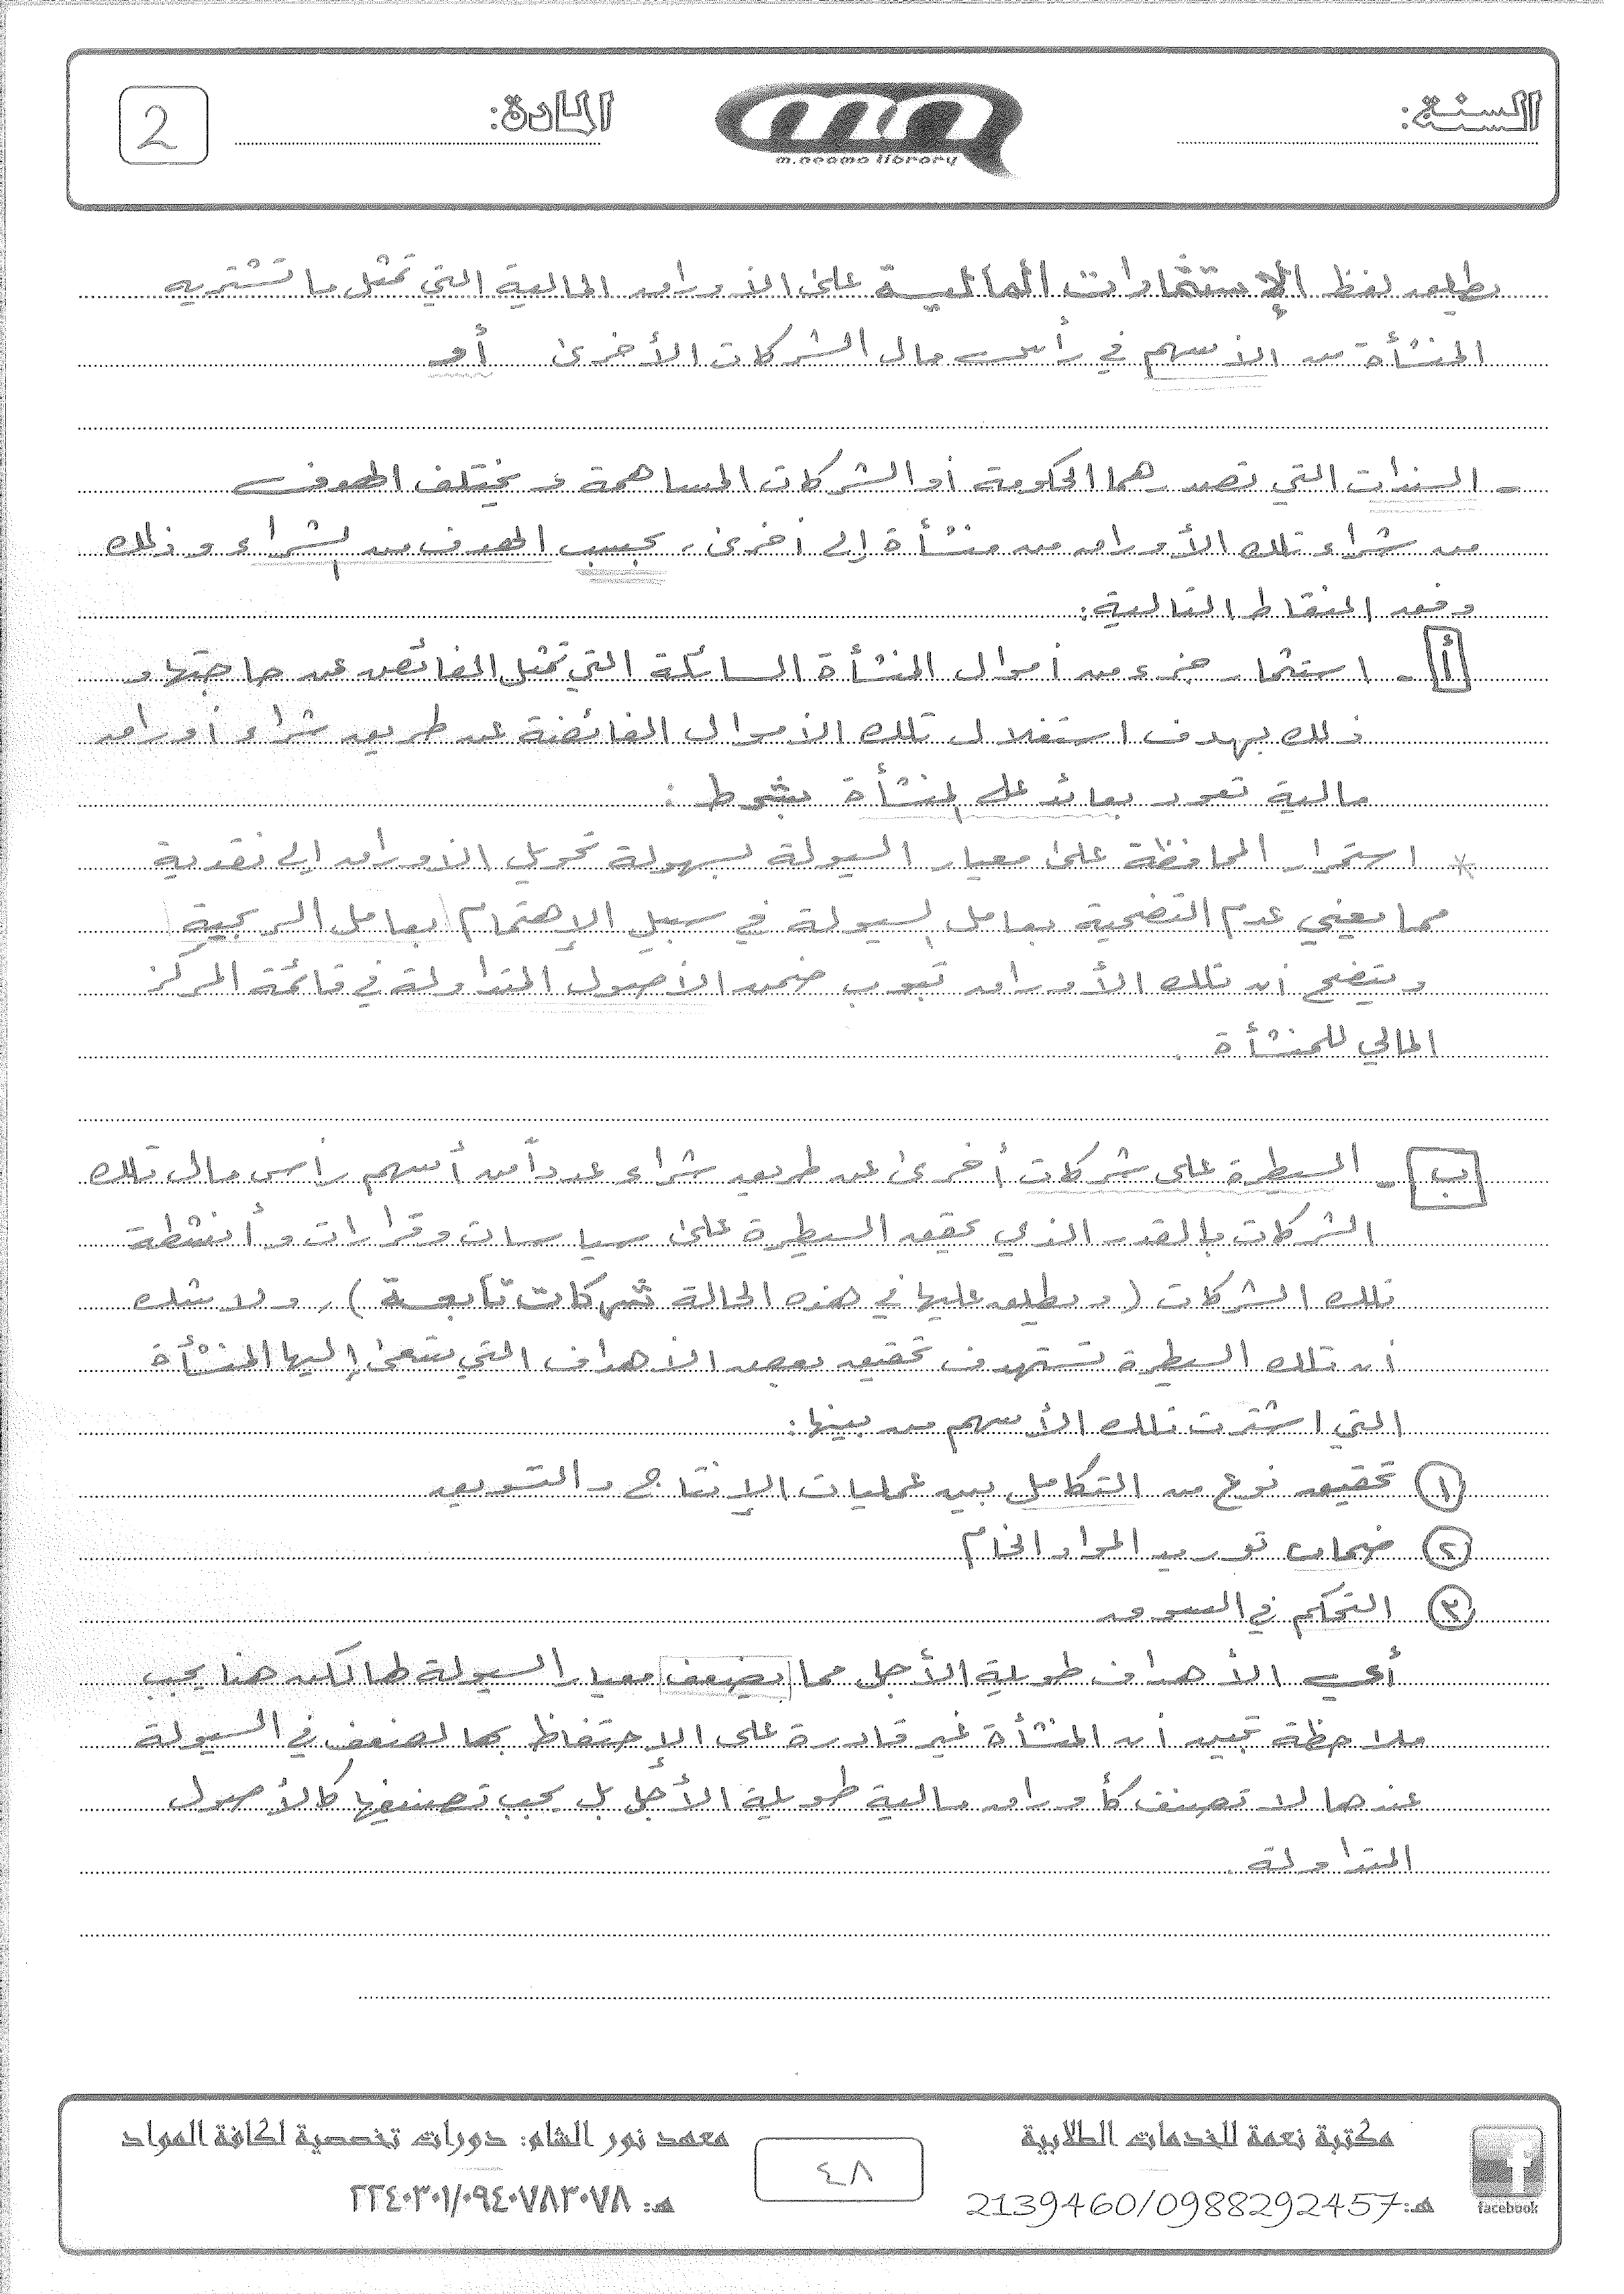 السنة:
m.neama library
المادة:
2
يطلق لفظ الإستثمارات المالية على الأوراق المالية التي تمثل ما تشتريه
المنشأة من الأسهم في رأس مال الشركات الأخرى أو
- السندات التي تصدرها الحكومة أو الشركات المساهمة و يختلف الهدف
من شراء تلك الأوراق من منشأة إلى أخرى، بحسب الهدف من لشراء و ذلك
وفق النقاط التالية:
أ - استثمار جزء من أموال المنشأة السائلة التي تمثل الفائض عن حاجتها و
ذلك بهدف استغلال تلك الأموال الفائضة عن طريق شراء أوراق
مالية تعود بعائد على لمنشأة بشرط :
* استمرار المحافظة على معيار السيولة لسهولة تحويل الأوراق إلى نقدية
مما يعني عدم التضحية بعامل لسيولة في سبيل الإهتمام بعامل الربحية
ويتضح أن تلك الأوراق تبوب ضمن الأصول المتداولة في قائمة المركز
المالي للمنشأة .
ب - السيطرة على شركات أخرى عن طريق شراء عدداً من أسهم رأس مال تلك
الشركات بالقدر الذي يحقق السيطرة على سياسات وقرارات و أنشطة
تلك الشركات ( ويطلق عليها في هذه الحالة شركات تابعة ) , ولا شك
أن تلك السيطرة تستهدف تحقيق بعض الأهداف التي تسعى إليها المنشأة
التي اشترت تلك الأسهم من بينها:
١ تحقيق نوع من التكامل بين عمليات الإنتاج والتسويق
٢ ضمان توريد المواد الخام
٣ التحكم في السوق
أي الأهداف طويلة الأجل مما يضعف معيار السيولة لها لكن هنا يجب
ملاحظة تبين أن المنشأة غير قادرة على الإحتفاظ بها لضعف في السيولة
عندها لا تصنف كأوراق مالية طويلة الأجل بل يجب تصنيفها كالأصول
المتداولة
facebook
مكتبة نعمة للخدمات الطلابية
هـ:2139460/0988292457
٤٨
معهد نور الشام: دورات تخصصية لكافة المواد
هـ: ٢٢٤٠٣٠١/٠٩٤٠٧٨٣٠٧٨